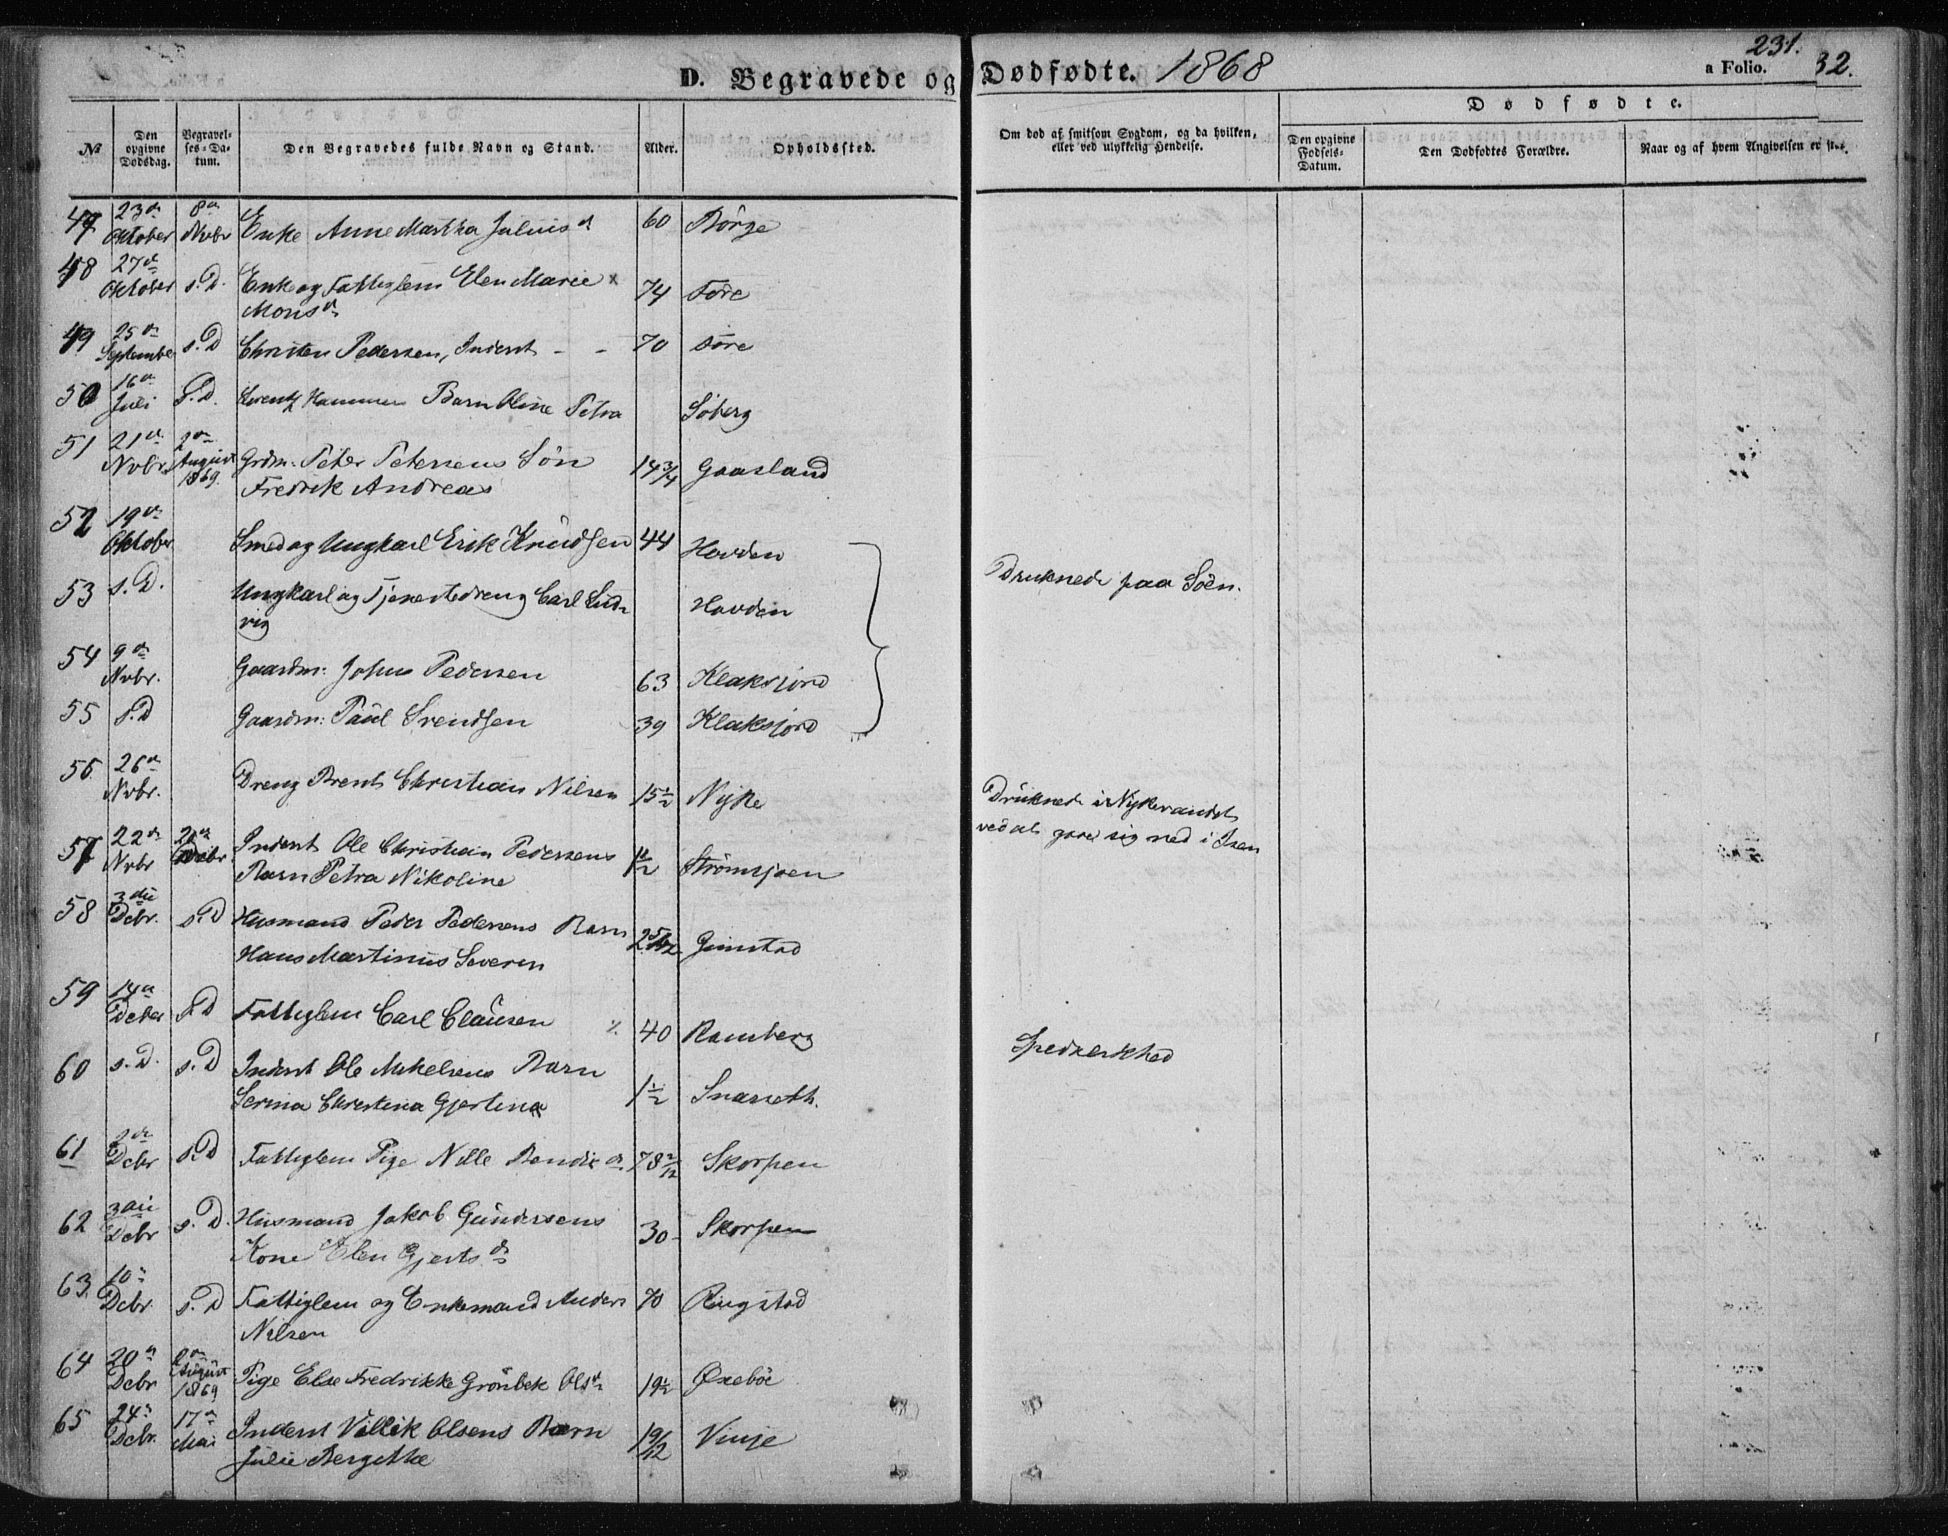 D. Begravede og Dødfødte. 1868
231.
a Folio. 32.
№
Den opgivne Dødsdag.
Begravelses-Datum.
Den Begravedes fulde Navn og Stand.
Alder.
Opholdssted.
Om død af smitsom Sygdom, og da hvilken, eller ved ulykkelig Hendelse.
Dødfødte.
Den opgivne Fødsels-Datum.
Den Dødfødtes Forældre.
Naar og af hvem Angivelsen er
47 23de Oktober 8de Nvbr Enke Anne Martha Juliusd 60 Börge
48 27de Oktober s. D. Enke og Fattiglem Elen Marie
Monsd 74 Före
49 25de September s. D Christen Pedersen, Inderst - - 70 Före
50 16de Juli s. D. Hammer Barn Oline Petra Söberg
51 21de Nvbr 2de August 1869. Grdm. Peter Petersens Sön
Fredrik Andreas 14 3/4 Gaasland
52 19de Oktober Smed og Ungkarl Erik Knudsen 44 Hovden
53 s. D. Ungkarl og Tjenestedreng Carl Lud-
vig Hovden
Druknede paa Söen.
54 9de Nvbr. Gaardm: Johns Pedersen 63 Klaksjord
55 s. D Gaardm: Paul Svendsen 39 Klaksjord
56 26de Nvbr. Dreng Brent Christian Nilsen 15 1/2 Nyke
Druknede i Nykevandet
ved at gaae sig ned i Isen
57 22de Nvbr Decbr Inderst Ole Christian Pedersens
Barn Petra Nikoline 1/2 Strömsjoen
58 3die Dcbr. s. D Husmand Peder Pedersens Barn
Hans Martinus Severin 2 Gimstad
59 14de Dcbr s. D Fattiglem Carl Clausen 40 Ramberg
Spedalskhed
60 s. D. s. D Inderst Ole Mekelsens Barn
Serina Christina Gjertina 1 1/2 Snarseth.
61 2de Dcbr s. D Fattiglem Pige Nille Bendixd. 78 2/12 Skorpen
62 3die Dcbr s. D Husmand Jakob Gundersens
Kone Elen Gjertsd 30 - Skorpen
63. 10de Dcbr. s. D Fattiglem og Enkemand Anders
Nilsen 70 Ringstad
64 20de Dcbr August 1869 Pige Else Fredrikke Grönbek Olsd 19 1/2 Øxebö
65 24de Dcbr. 17de Mai Inderst Villik Olsens Barn
Julie Bergitthe 1 9/12 Vinje